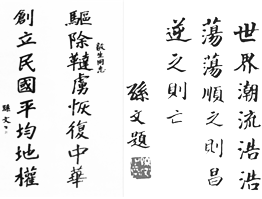 世界潮流浩浩
蕩蕩順之則昌
逆之則亡
孫文題
敬生同志
驅除韃虜恢復中華
創立民國平均地權
孫文